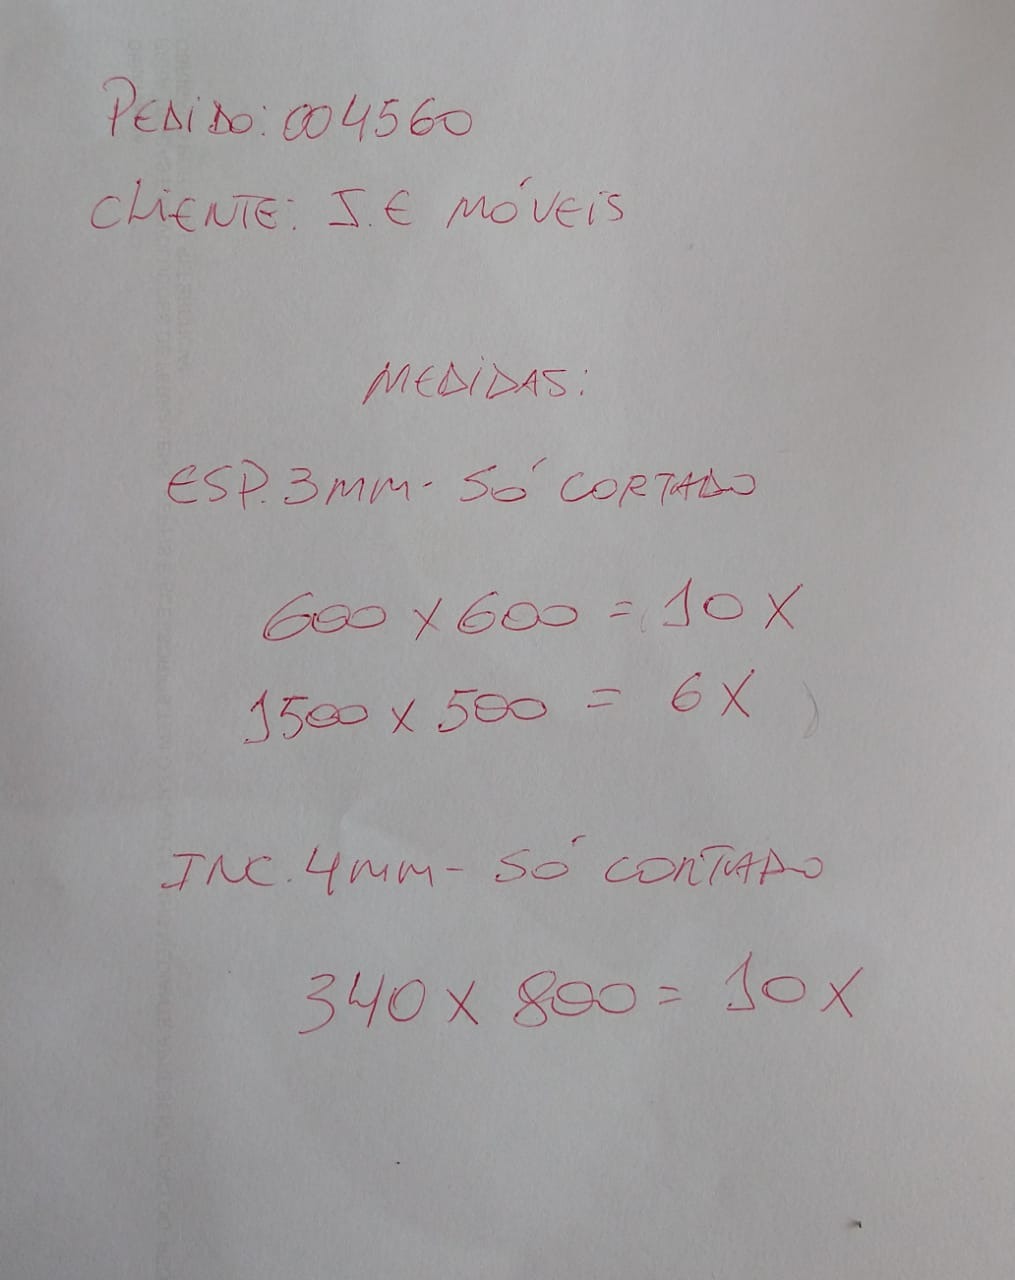 PEDIDO: 004560
CLIENTE: J.E MÓVEIS
MEDIDAS:
ESP. 3MM - SÓ CORTADO
600 X 600 = 10 X
1500 X 500 = 6 X
INC. 4MM - SÓ CORTADO
340 X 800 = 10 X